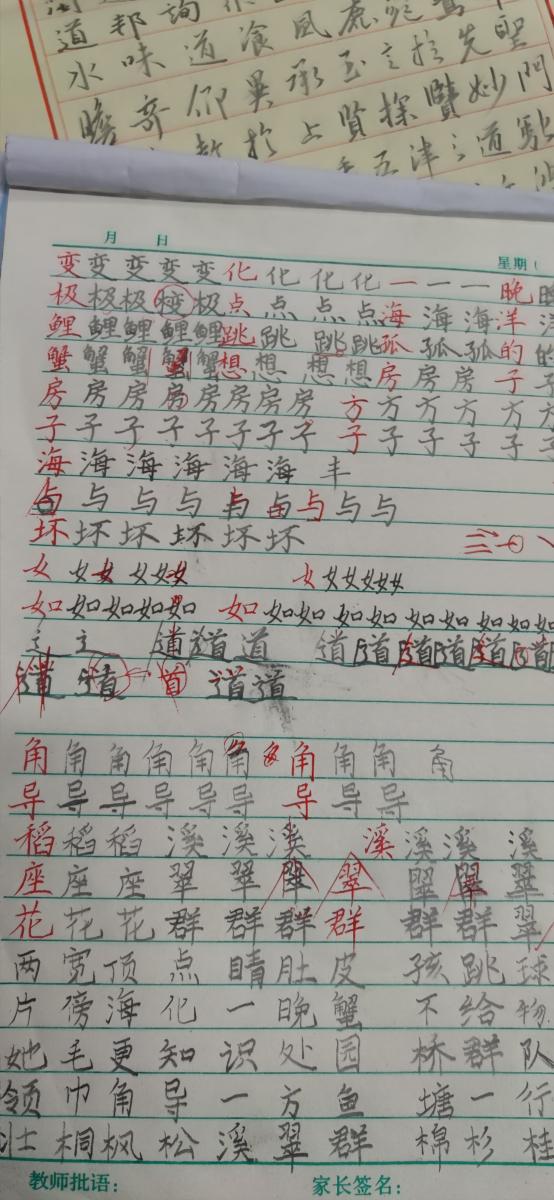 道邦詢
水味道飡風
承玉之於先聖
瞻奇仰異
於上賢探賾妙門
五津之道
月 日 星期（
变变变变变化化化化一一一晚
极极极极点点点点海海海洋
鲤鲤鲤鲤鲤跳跳跳跳孤孤孤的的
蟹蟹蟹蟹蟹想想想想房房房子子
房房房房房房房房方方方方方方
子子子子子子子子子子子子子子
海海海海海海丰
与与与与与与与与与
坏坏坏坏坏坏
女女女女女女女女女女女女
如如如如如如如如如如如如如
辶辶道道道道道道道道道
道道首道道
角角角角角角角角角角
导导导导导导导导导
稻稻稻溪溪溪溪溪溪溪
座座座翠翠翠翠翠翠翠
花花花群群群群群群翠
两宽顶点睛肚皮孩跳球
片傍海化一晚蟹不给物
她毛更知识处园桥群队
领巾角导一方鱼塘一行
壮桐枫松溪翠群棉杉桂
教师批语： 家长签名：